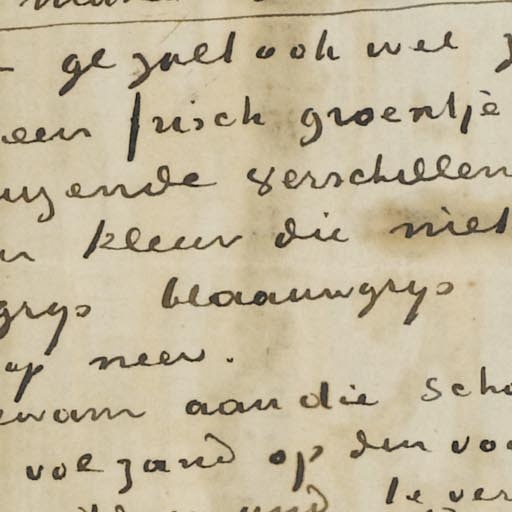 ge zult ook wel
een frisch groentje
uzende verschillen
n kleur die niet
grys blaauwgrys
op neer.
kwam aan die Scho
vol zand op den voo
te ver